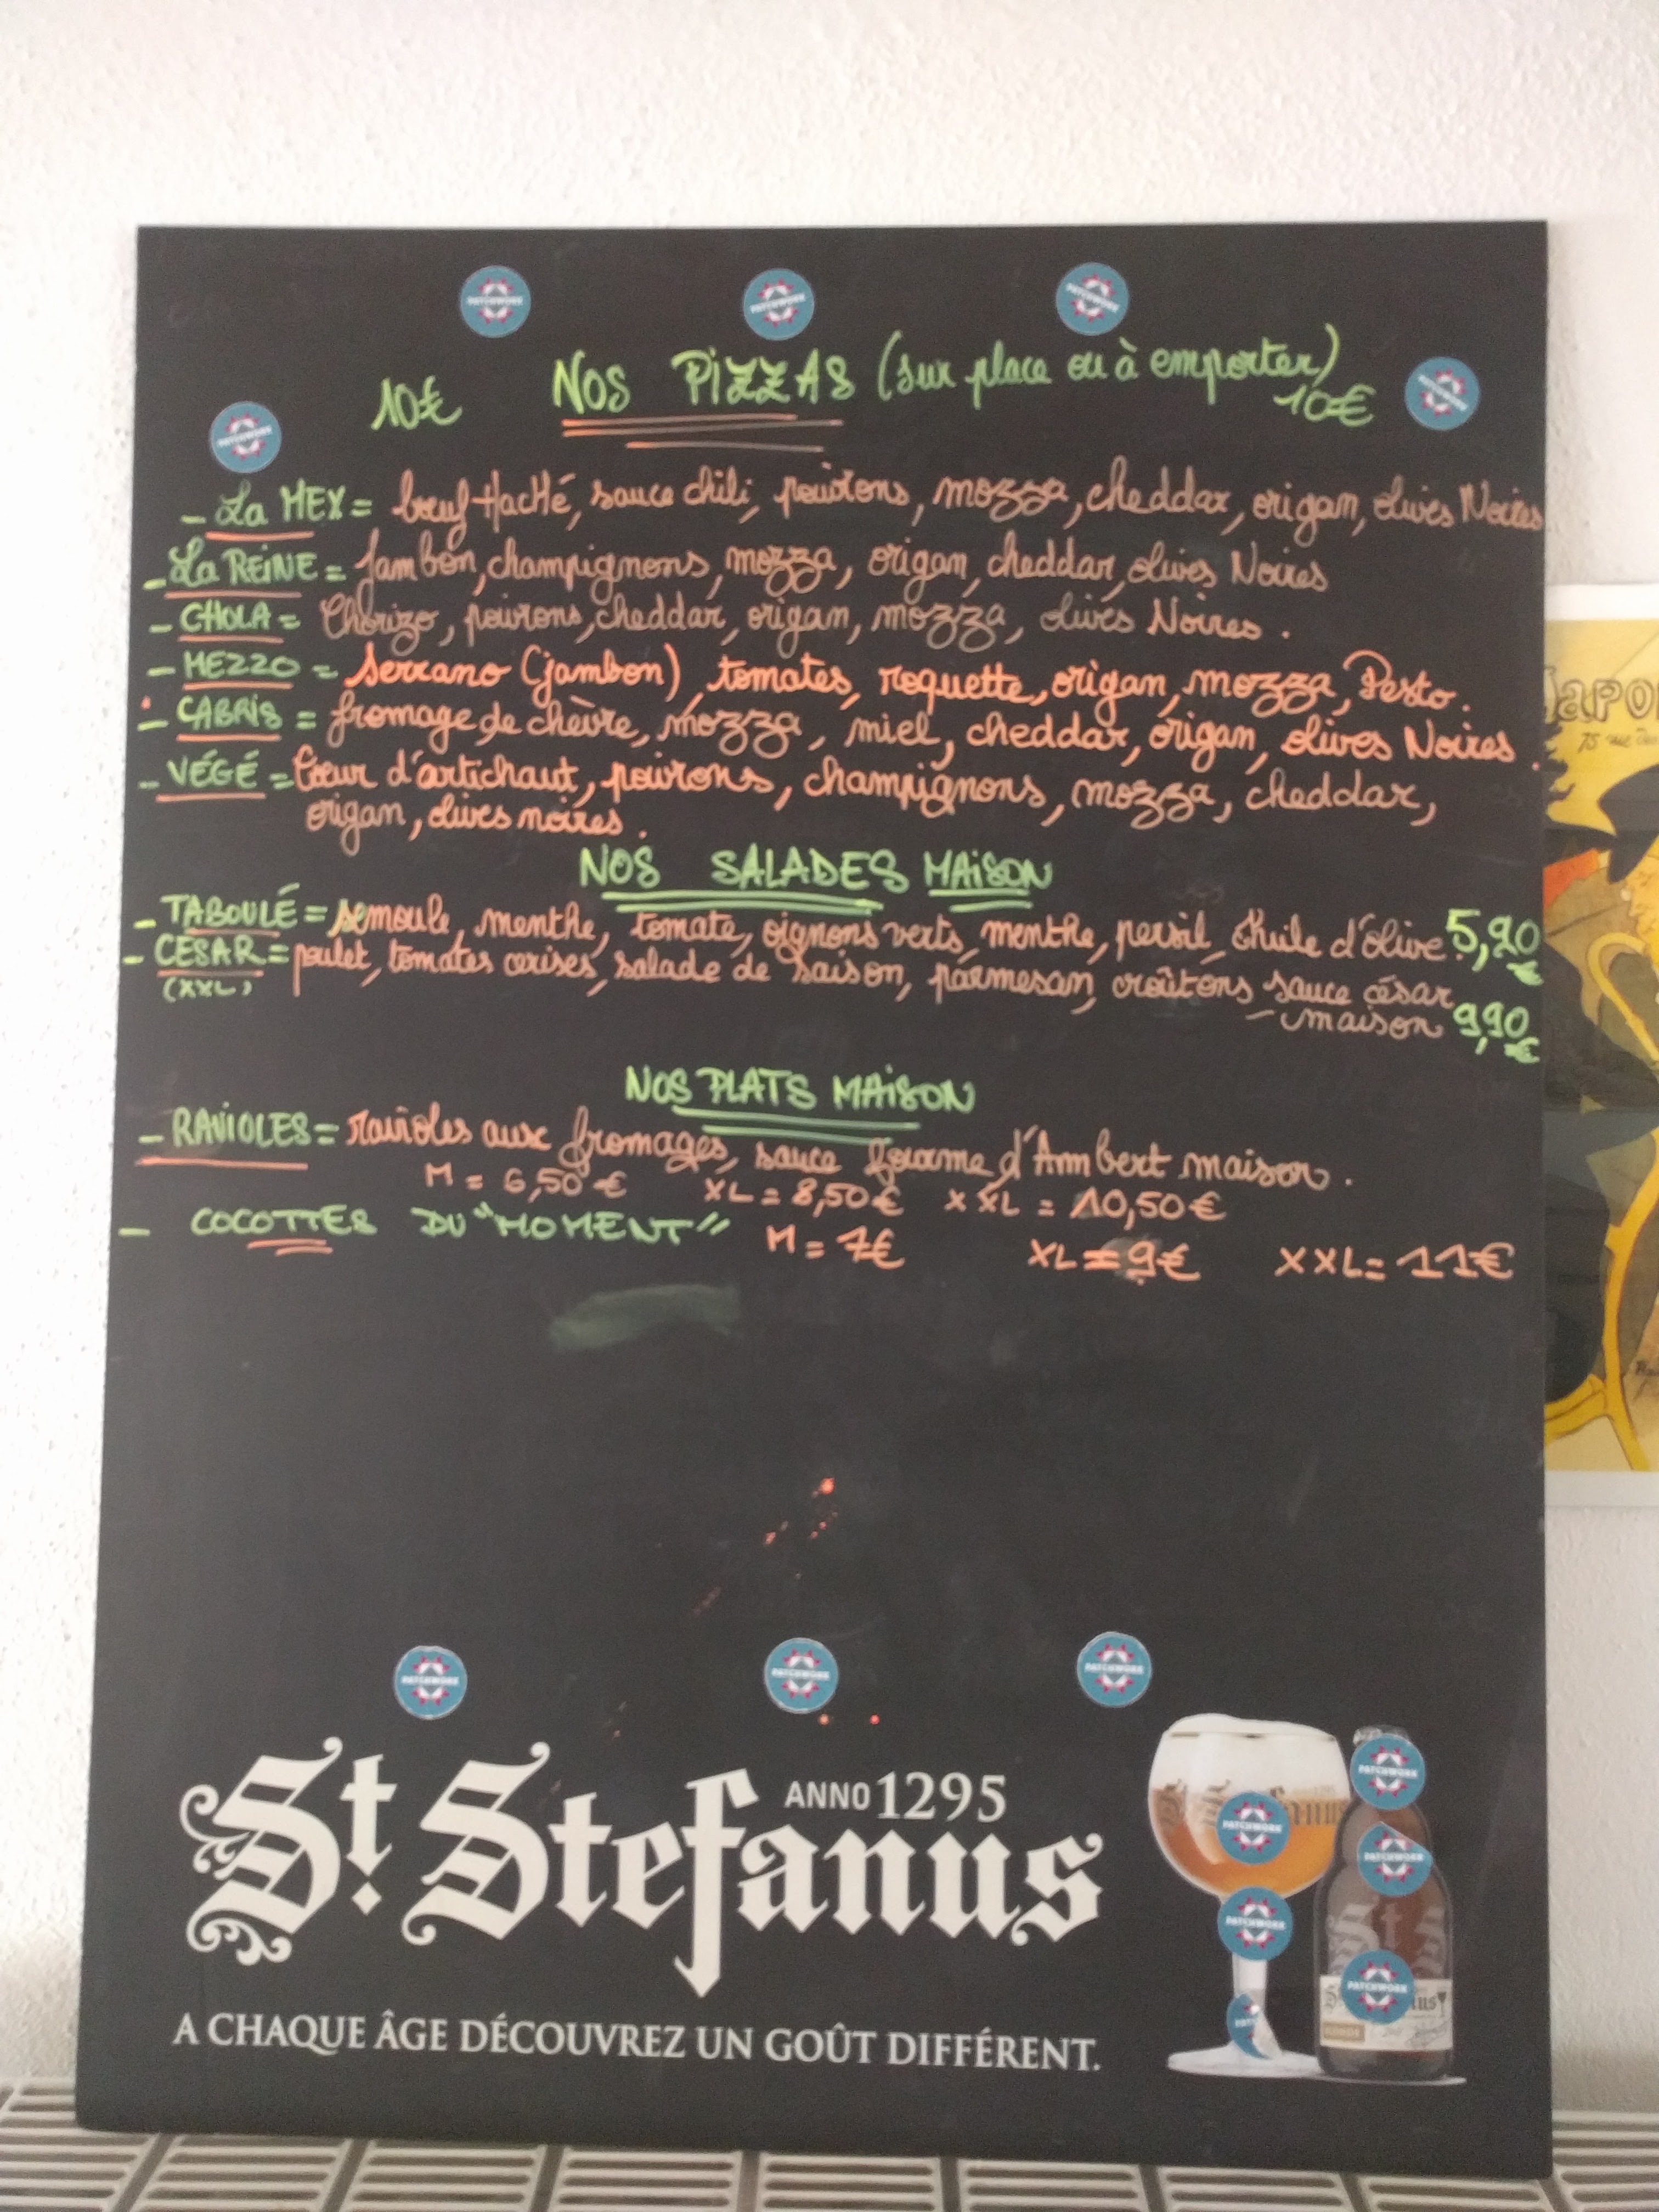 PATCHWORK PATCHWORK PATCHWORK
PATCHWORK PATCHWORK
10€ NOS PIZZAS (sur place ou à emporter) 10€
- La MEX = bœuf Haché, sauce chili, poivrons, mozza, cheddar, origan, olives Noires
- La REINE = Jambon, champignons, mozza, origan, cheddar, olives Noires
- CHOLA = Chorizo, poivrons, cheddar, origan, mozza, olives Noires.
- MEZZO = Serrano (jambon), tomates, roquette, origan, mozza, Pesto.
- CABRIS = fromage de chèvre, mozza, miel, cheddar, origan, olives Noires.
- VÉGÉ = Cœur d'artichaut, poivrons, champignons, mozza, cheddar,
origan, olives noires.
NOS SALADES MAISON
- TABOULÉ = semoule, menthe, tomate, oignons verts, menthe, persil, huile d'olive 5,90 €
- CESAR = poulet, tomates cerises, salade de saison, parmesan, croûtons sauce césar
(XXL) - maison 9,90 €
NOS PLATS MAISON
- RAVIOLES = ravioles aux fromages, sauce fourme d'Ambert maison.
M = 6,50€ XL = 8,50€ XXL = 10,50€
- COCOTTES DU "MOMENT" M = 7€ XL = 9€ XXL = 11€
PATCHWORK PATCHWORK PATCHWORK
St. Stefanus ANNO 1295
A CHAQUE ÂGE DÉCOUVREZ UN GOÛT DIFFÉRENT.
PATCHWORK
PATCHWORK
PATCHWORK
PATCHWORK
PATCHWORK
Japon
75 rue